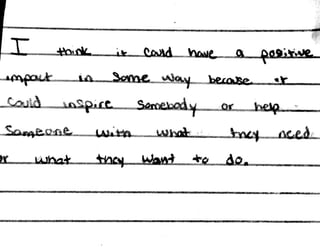 I think it could have a positive
impact in some way because it
could inspire somebody or help
someone with what they need
or what they want to do.